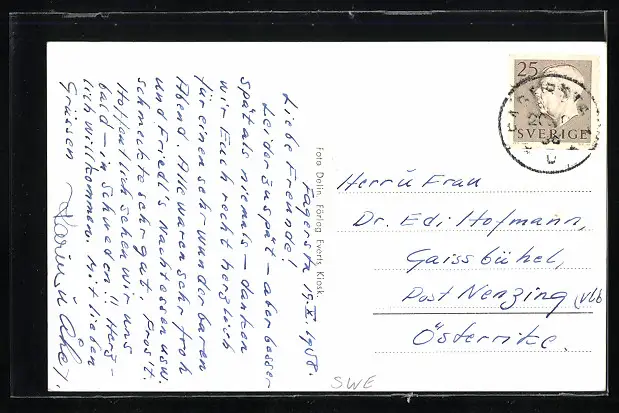 Fagersta 19.X. 1958.
Liebe Freunde!
Leider zu spät – aber besser
spät als niemals – danken
wir Euch recht herzlich
für einen sehr wunderbaren
Abend. Alle waren sehr froh
und Friedl's Nachtessen usw.
schmeckte sehr gut. Prosit.
Hoffentlich sehen wir uns
bald – in Schweden!! Herz-
lich willkommen. Mit lieben
Grüssen
Karin u Åke
Foto Delin, Förlag Everts Kiosk
25
SVERIGE
Herr u Frau
Dr. Edi Hofmann,
Gaissbühel,
Post Nenzing (vlb
Österrike.
SWE